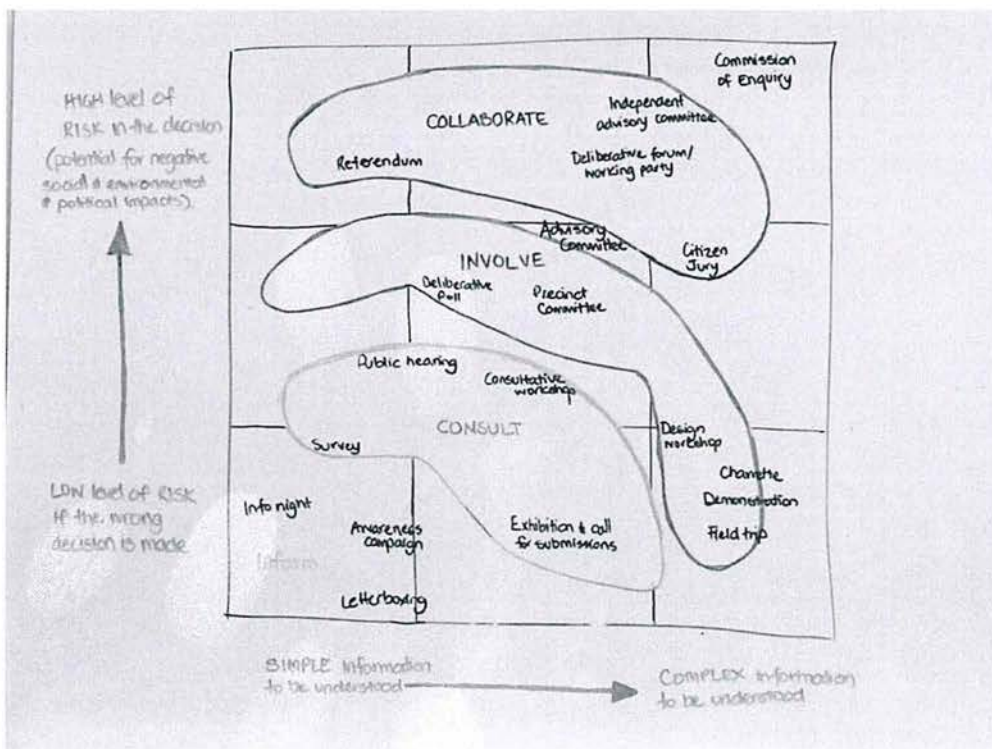 HIGH level of
RISK in the decision
(potential for negative
social & environmental
& political impacts).
LOW level of RISK
if the wrong
decision is made
Commission
of Enquiry
COLLABORATE
Independent
advisory committee
Referendum
Deliberative forum/
working party
Advisory
Committee
Citizen
Jury
INVOLVE
Deliberative
Poll
Precinct
Committee
Public hearing
Consultative
workshop
CONSULT
Survey
Design
workshop
Charrette
Demonstration
Field trip
Info night
Awareness
campaign
Exhibition & call
for submissions
Inform
Letterboxing
SIMPLE information
to be understood
COMPLEX information
to be understood